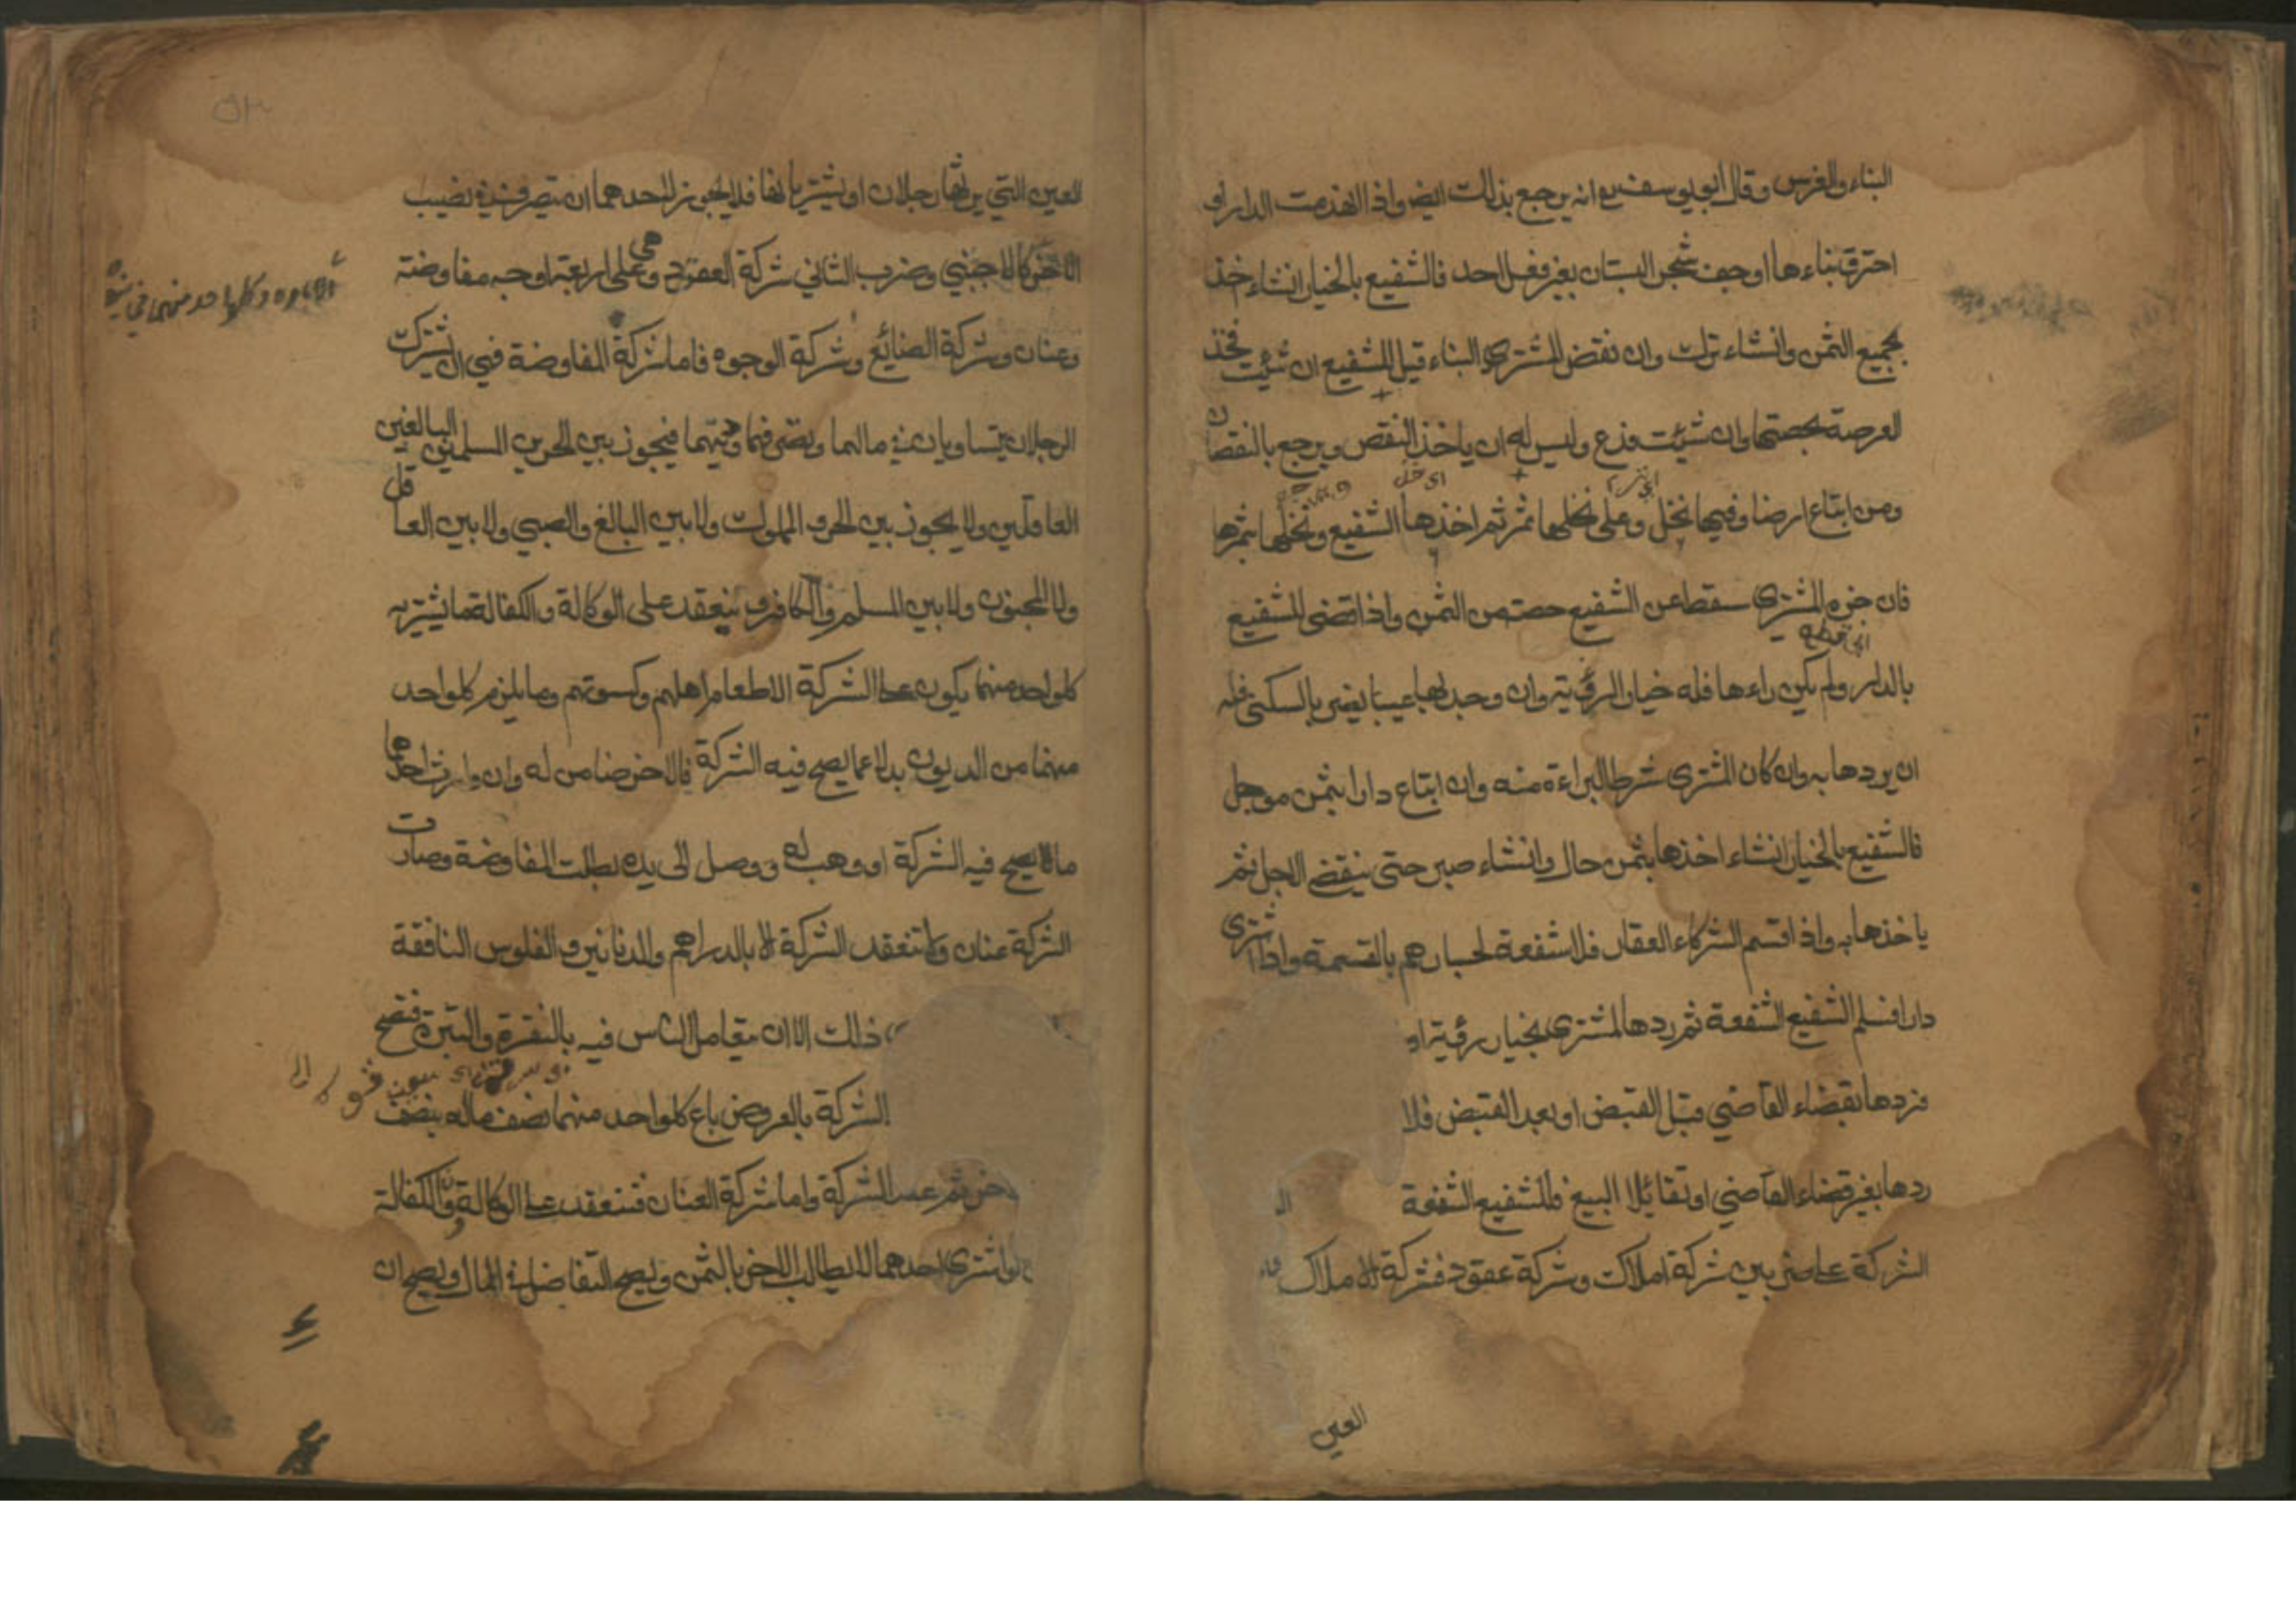 البناء والغرس وقال ابو يوسف رح انه يرجع بذلك ايض واذا انهدمت الدار او
احترق بناءها او جف شجر البستان بغير فعل احد فالشفيع بالخيار انشاء اخذ
بجميع الثمن وانشاء ترك وان نقض المشتري البناء قيل للشفيع ان شئت فخذ
العرصة بحصتها وان شئت فدع وليس له ان ياخذ النقض ويرجع بالنقصان
ومن ابتاع ارضا وفيها نخل وعلى نخلها ثمر ثم اخذها الشفيع ونخلها بثمرها
فان جزه المشتري سقط عن الشفيع حصته من الثمن واذا قضى للشفيع
اي قطع
بالدار ولم يكن راءها فله خيار الرؤيته وان وجد بها عيبا يضر بالسكنى فله
ان يردها به وان كان المشتري شرط البراءة منه وان ابتاع دارا بثمن موجل
فالشفيع بالخيار انشاء اخذها بثمن حال وانشاء صبر حتى ينقض الاجل ثم
ياخذها به واذا اقتسم الشركاء العقار فلا شفعة لجارهم بالقسمة واذا اشترى
دارا فسلم الشفيع الشفعة ثم ردها المشتري بخيار رؤيته او
فردها بقضاء القاضي قبل القبض او بعد القبض فلا
ردها بغير قضاء القاضي او تقائلا البيع فللشفيع الشفعة
الشركة على ضربين شركة املاك وشركة عقود فشركة الاملاك
العين
العين التي يرثها رجلان او يشتريانها فلا يجوز لاحدهما ان يتصرف في نصيب
الاخر كالاجنبي وضرب الثاني شركة العقود وهي على اربعة اوجه مفاوضة
وعنان وشركة الصنائع وشركة الوجوه فاما شركة المفاوضة فهي ان يشترك
الرجلان يتساويان في مالهما وتصرفهما ودينهما فيجوز بين الحرين المسلمين البالغين
العاقلين ولا يجوز بين الحر والمملوك ولا بين البالغ والصبي ولا بين العاقل
ولا المجنون ولا بين المسلم والكافر وينعقد على الوكالة والكفالة فما يشتريه
كلواحد منهما يكون على الشركة الا طعام اهلهم وكسوتهم وما يلزم كلواحد
منهما من الديون بدلا عما يصح فيه الشركة فالاخر ضامن له وان وارث احدهما
مالا يصح فيه الشركة او وهب له ووصل الى يده بطلت المفاوضة وصارت
الشركة عنان ولا تنعقد الشركة الا بالدراهم والدنانير والفلوس النافقة
ذلك الا ان يتعامل الناس فيه بالنقرة والتبرة فتصح
الشركة بالعروض باع كلواحد منهما نصف ماله بنصف
اخر ثم عقد الشركة واما شركة العنان فتنعقد على الوكالة والكفالة
اشترى احدهما لا يطالب الاخر بالثمن ويصح التفاضل في المال ويصح ان